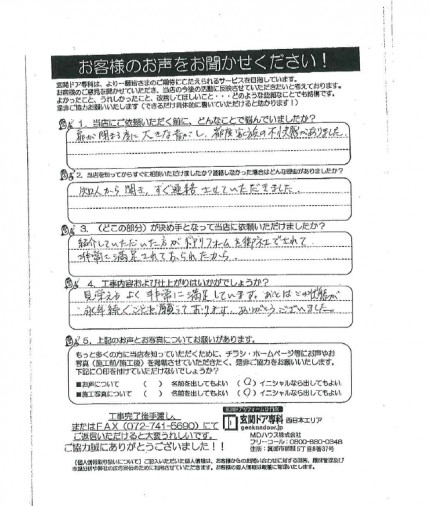 お客様のお声をお聞かせください！
玄関ドア専科は、より一層皆さまのご期待にこたえられるサービスを目指しています。
お客様のご意見を聞かせていただき、当店の今後の活動に反映させていただきたいと考えております。
よかったこと、うれしかったこと、改善してほしいこと・・・どのような些細なことでも結構です。
是非ご協力お願いいたします（できるだけ具体的に書いていただけると助かります！）
1．当店にご依頼いただく前に、どんなことで悩んでいましたか？
扉が閉まる度に大きな音がし、都度家族の不快感がありました。
2．当店を知ってからすぐに相談いただけましたか？連絡しなかった場合はどんな理由がありましたか？
知人から聞き、すぐ連絡させていただきました。
3．（どこの部分）が決め手となって当店に依頼いただけましたか？
紹介していただいた方がドアリフォームを御社でされて、
非常に満足されておられたから。
4．工事内容および仕上がりはいかがでしょうか？
見栄えもよく非常に満足しています。あとはこの状態が
永年続くことを願っております。ありがとうございました。
5．上記のお声とお写真についてお願いがあります。
もっと多くの方に当店を知っていただくために、チラシ・ホームページ等にお声やお
写真（施工前/施工後）を掲載させていただきたく、是非ご協力をお願いいたします。
下記に〇印を付けていただけないでしょうか？
■お声について （ ）名前を出してもよい （〇）イニシャルなら出してもよい
■施工写真について （ ）名前を出してもよい （〇）イニシャルなら出してもよい
工事完了後手渡し、
またはFAX（072-741-5690）にて
ご返信いただけると大変うれしいです。
ご協力誠にありがとうございました！！
玄関ドア専科 西日本エリア
genkandoor.jp
MDハウス株式会社
フリーコール：0800-880-0348